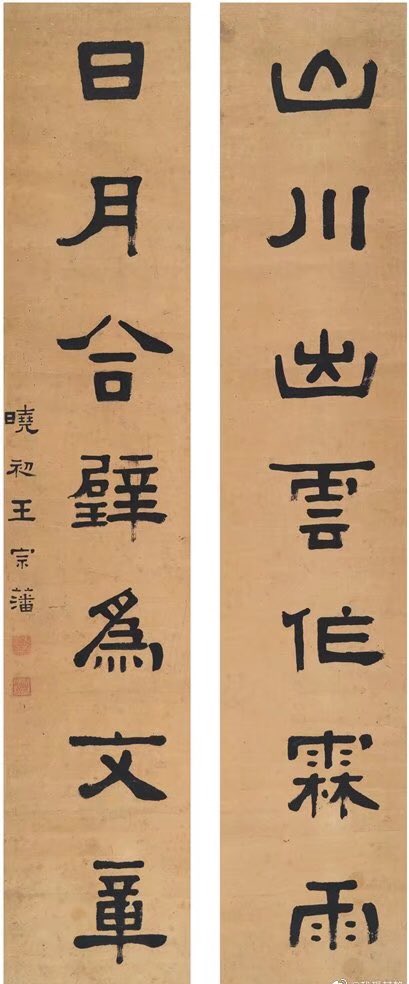 山川出雲作霖雨
日月合璧爲文章
曉初王宗藩